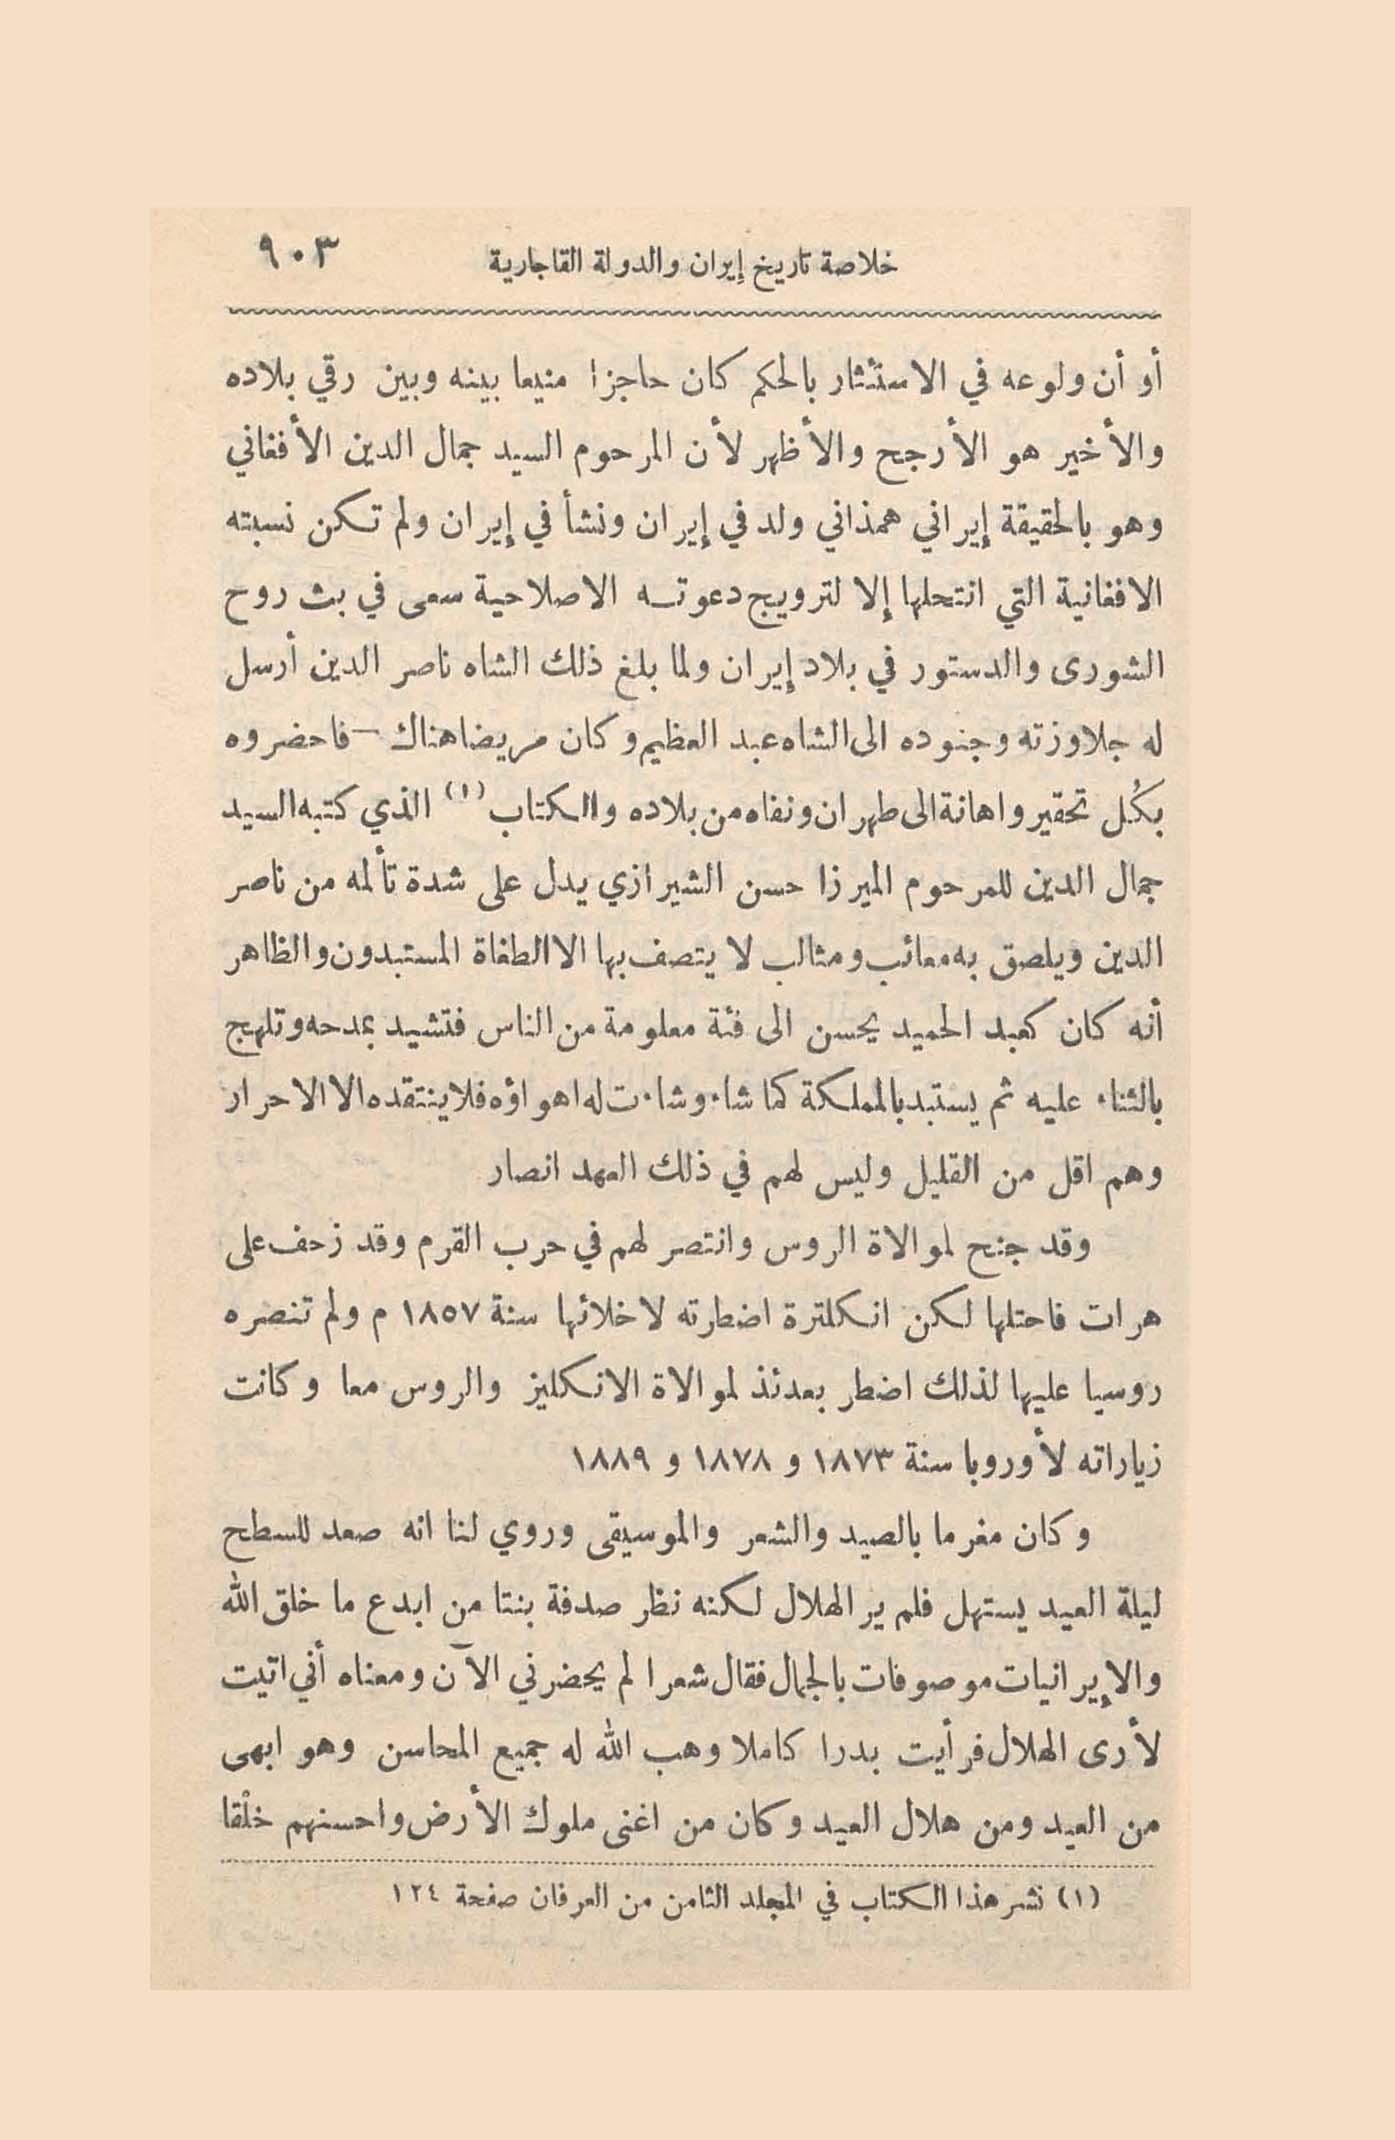 خلاصة تاريخ إيران والدولة القاجارية ٩٠٣
أو أن ولوعه في الاستئثار بالحكم كان حاجزا منيعا بينه وبين رقي بلاده
والأخير هو الأرجح والأظهر لأن المرحوم السيد جمال الدين الأفغاني
وهو بالحقيقة إيراني همذاني ولد في إيران ونشأ في إيران ولم تكن نسبته
الافغانية التي انتحلها إلا لترويج دعوته الاصلاحية سعى في بث روح
الشورى والدستور في بلاد إيران ولما بلغ ذلك الشاه ناصر الدين أرسل
له جلاوزته وجنوده الى الشاه عبد العظيم وكان مريضا هناك – فاحضروه
بكُل تحقير واهانة الى طهران ونفاه من بلاده والكتاب (١) الذي كتبه السيد
جمال الدين للمرحوم الميرزا حسن الشيرازي يدل على شدة تألمه من ناصر
الدين ويلصق به معائب ومثالب لا يتصف بها الا الطغاة المستبدون والظاهر
أنه كان كعبد الحميد يحسن الى فئة معلومة من الناس فتشيد بمدحه وتلهج
بالثناء عليه ثم يستبد بالمملكة كما شاء وشاءت له اهواؤه فلا ينتقده الا الاحرار
وهم اقل من القليل وليس لهم في ذلك العهد انصار
وقد جنح لموالاة الروس وانتصر لهم في حرب القرم وقد زحف على
هرات فاحتلها لكن انكلترة اضطرته لاخلائها سنة ١٨٥٧ م ولم تنصره
روسيا عليها لذلك اضطر بعدئذ لموالاة الانكليز والروس معا وكانت
زياراته لأوروبا سنة ١٨٧٣ و ١٨٧٨ و ١٨٨٩
وكان مغرما بالصيد والشعر والموسيقى وروي لنا انه صعد للسطح
ليلة العيد يستهل فلم ير الهلال لكنه نظر صدفة بنتا من ابدع ما خلق الله
والإيرانيات موصوفات بالجمال فقال شعرا لم يحضرني الآن ومعناه أني اتيت
لأرى الهلال فرأيت بدرا كاملا وهب الله له جميع المحاسن وهو ابهى
من العيد ومن هلال العيد وكان من اغنى ملوك الأرض واحسنهم خلْقا
(١) نشر هذا الكتاب في المجلد الثامن من العرفان صفحة ١٢٤